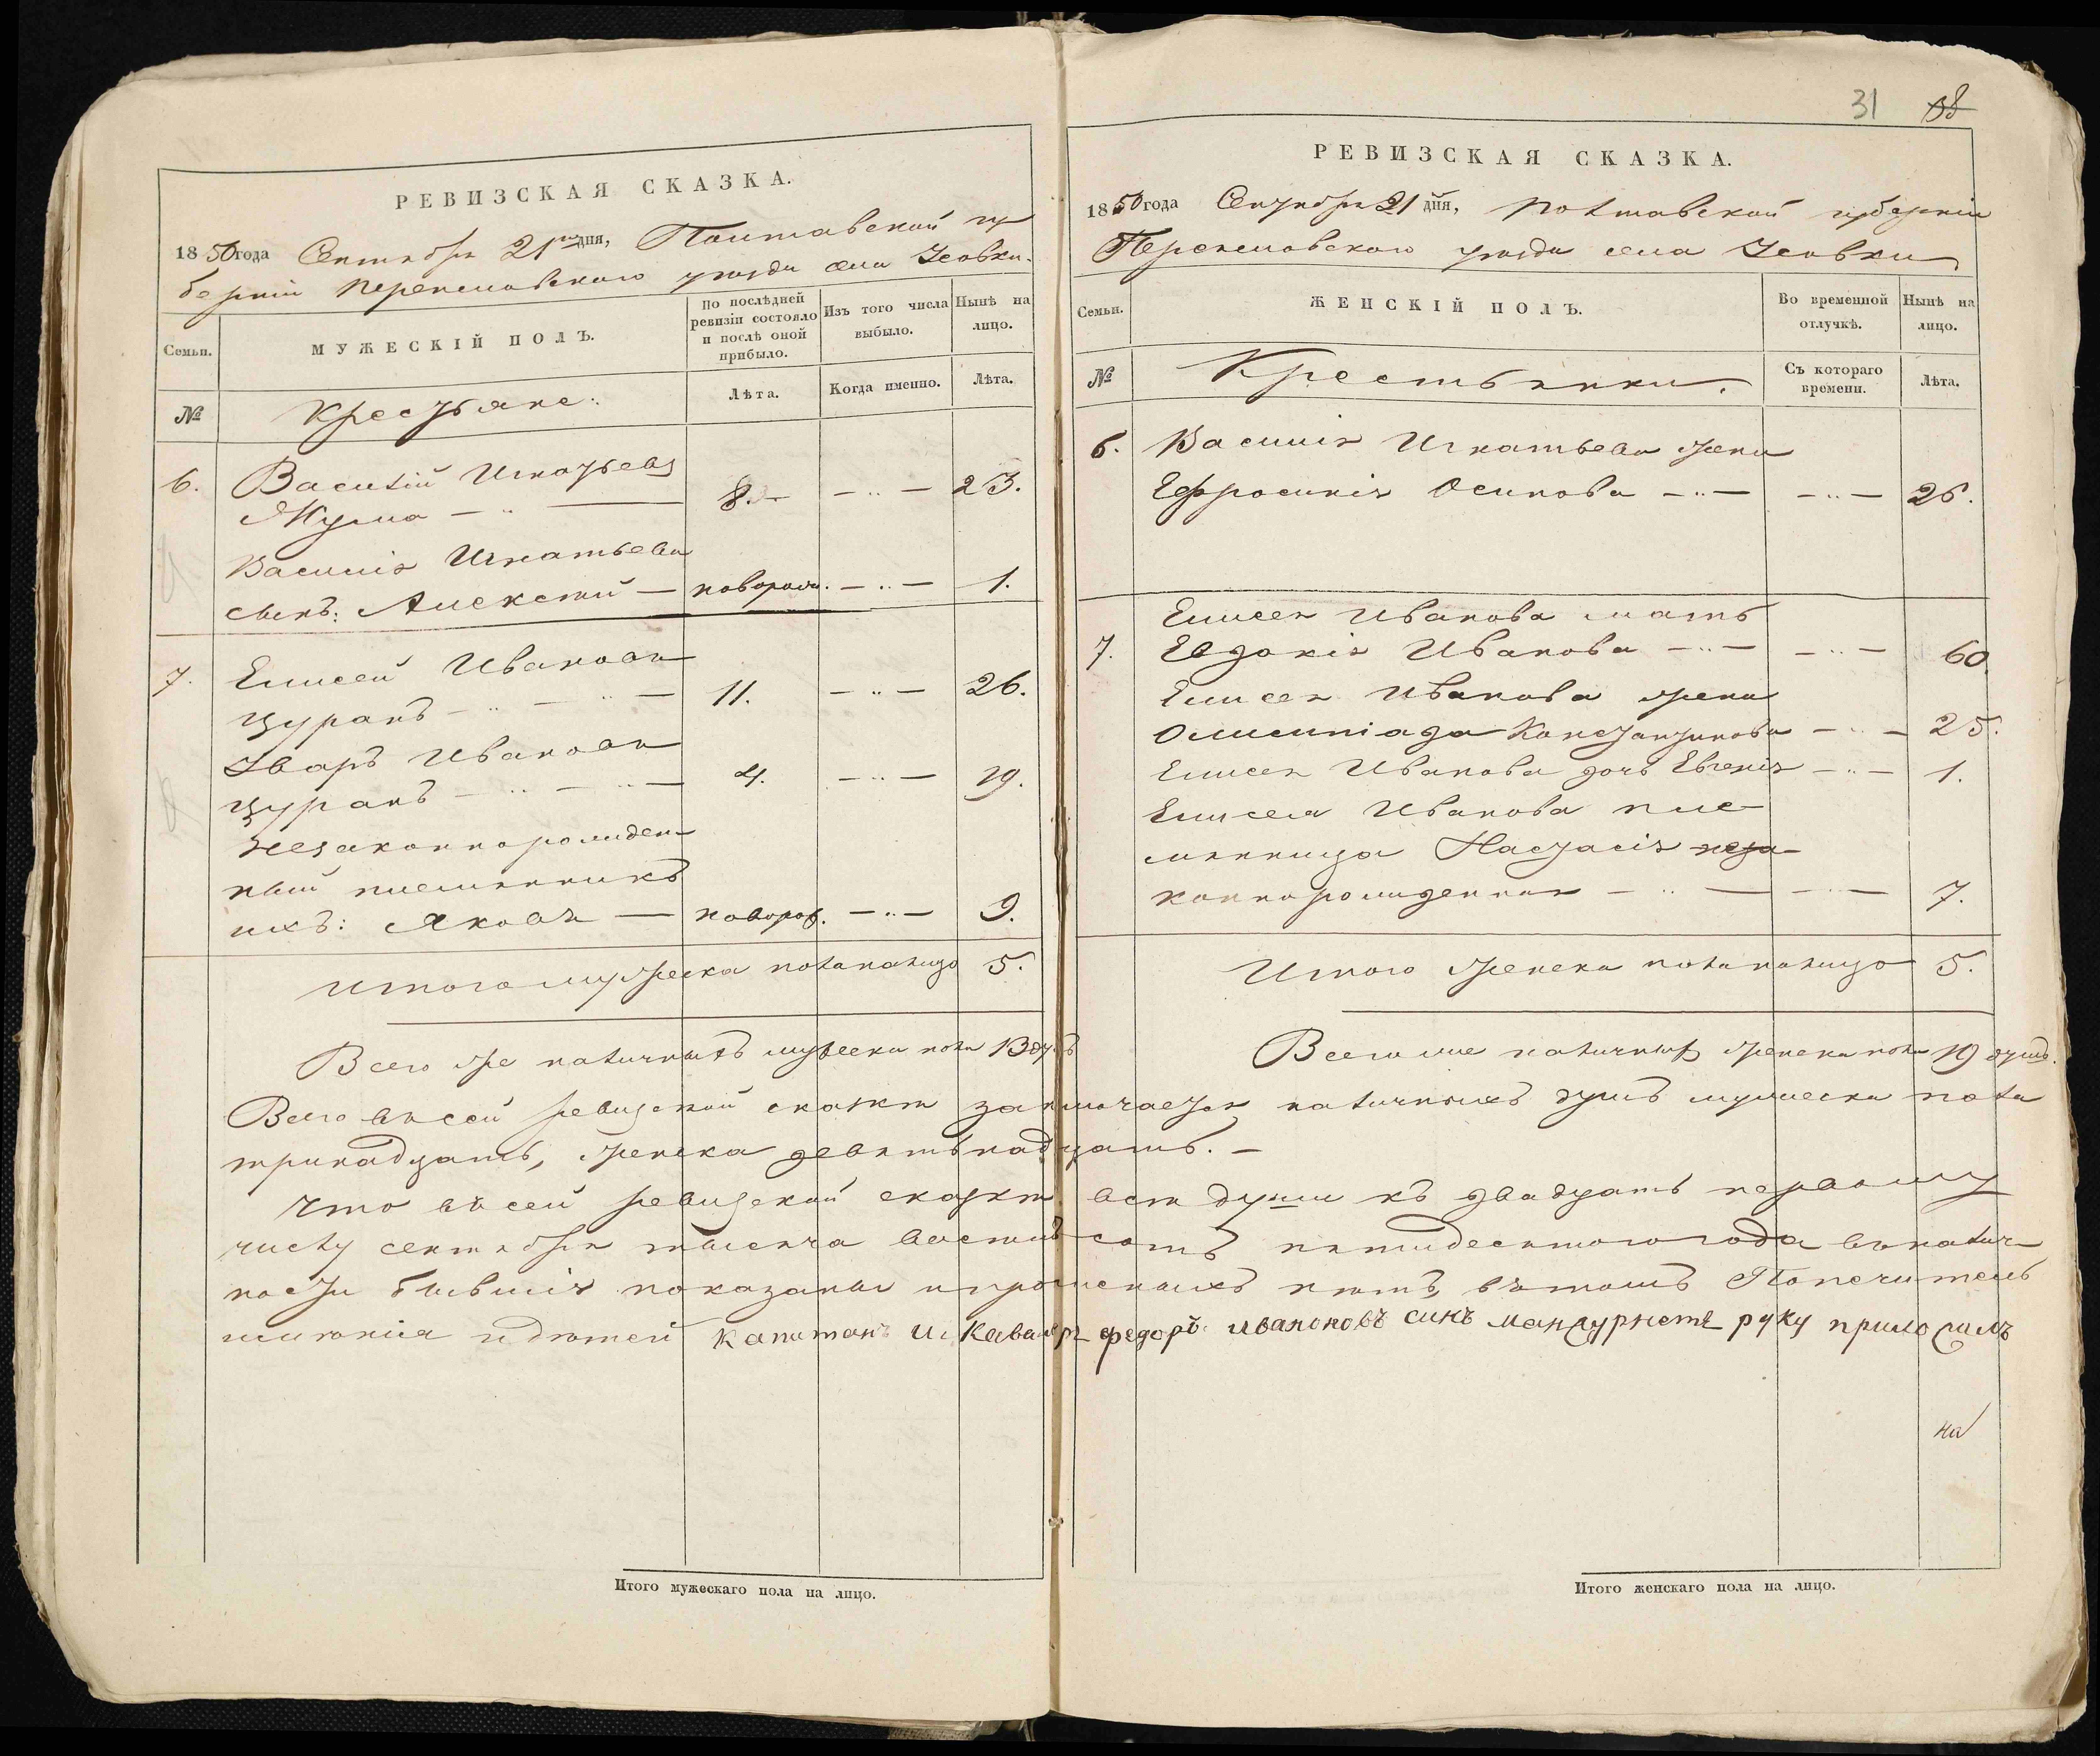 РЕВИЗСКАЯ СКАЗКА.
1850 года Сентября 21го дня, Полтавской гу
берніи Переяславскаго уѣзда села Усовки.
Семьи.
МУЖЕСКІЙ ПОЛЪ.
По послѣдней ревизіи состояло и послѣ оной прибыло.
Изъ того числа выбыло.
Нынѣ на лицо.
№
Крестьяне.
Лѣта.
Когда именно.
Лѣта.
6. Василій Игнатьевъ
8. — 〃 — 23.
Василія Игнатьева
сынъ: Алексѣй — новорож. — 〃 — 1.
7. Елисей Ивановъ
Цуранъ — 〃 — 〃 — 11. — 〃 — 26.
Уваръ Ивановъ
Цуранъ — 〃 — 〃 — 4. — 〃 — 19.
Незаконнорожден
ный племянникъ
ихъ: Яковъ — новорож. — 〃 — 9.
Итого мужеска пола налицо 5.
Всего же наличныхъ мужеска пола 13 душъ
31 38
РЕВИЗСКАЯ СКАЗКА.
1850 года Сентября 21 дня, Полтавской губерніи
Переяславскаго уѣзда села Усовки
Семьи.
ЖЕНСКІЙ ПОЛЪ.
Во временной отлучкѣ.
Нынѣ на лицо.
№
Крестьянки.
Съ котораго времени.
Лѣта.
6. Василія Игнатьева жена
Ефросинія Осипова — 〃 — — 〃 — 26.
Елисея Иванова мать
7. Евдокія Иванова — 〃 — — 〃 — 60.
Елисея Иванова жена
Олимпіада Константинова — 〃 — 25.
Елисея Иванова дочь Евгенія — 〃 — 1.
Елисея Иванова пле
мянница Настасія неза
коннорожденная — 〃 — — 〃 — 7.
Итого женска пола налицо 5.
Всего же наличныхъ женска пола 19 душъ.
Всего въ сей ревизской сказкѣ заключается наличныхъ душъ мужеска пола
тринадцать, женска девятнадцать. —
Что въ сей ревизской сказкѣ всѣ души къ двадцать первому
числу сентября тысяча восемь сотъ пятидесятого года въ налич
ности бывшія показаны и прописныхъ нѣтъ, въ томъ Попечитель
имѣнія и дѣтей капитанъ и Кавалеръ федоръ ивановъ синъ руку приложилъ
на
Итого мужескаго пола на лицо.
Итого женскаго пола на лицо.